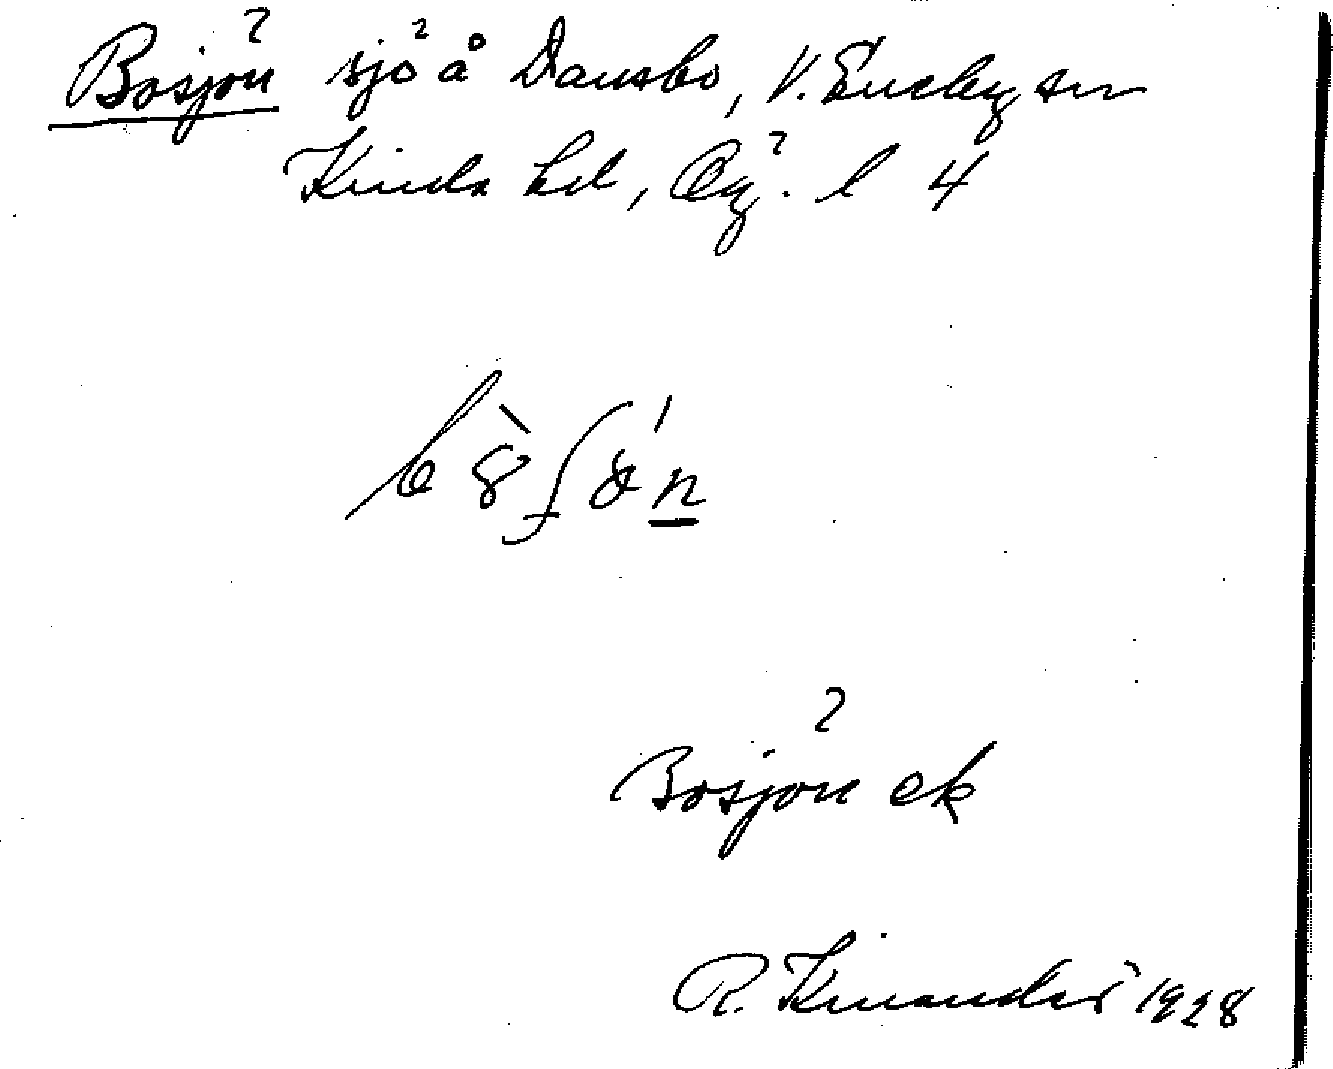 Bosjön sjö å Dansbo, V. Eneby sn
Kinda hd, Ög. l 4
b8̀ʃǿn
Bosjön ek
R. Kinander 1928